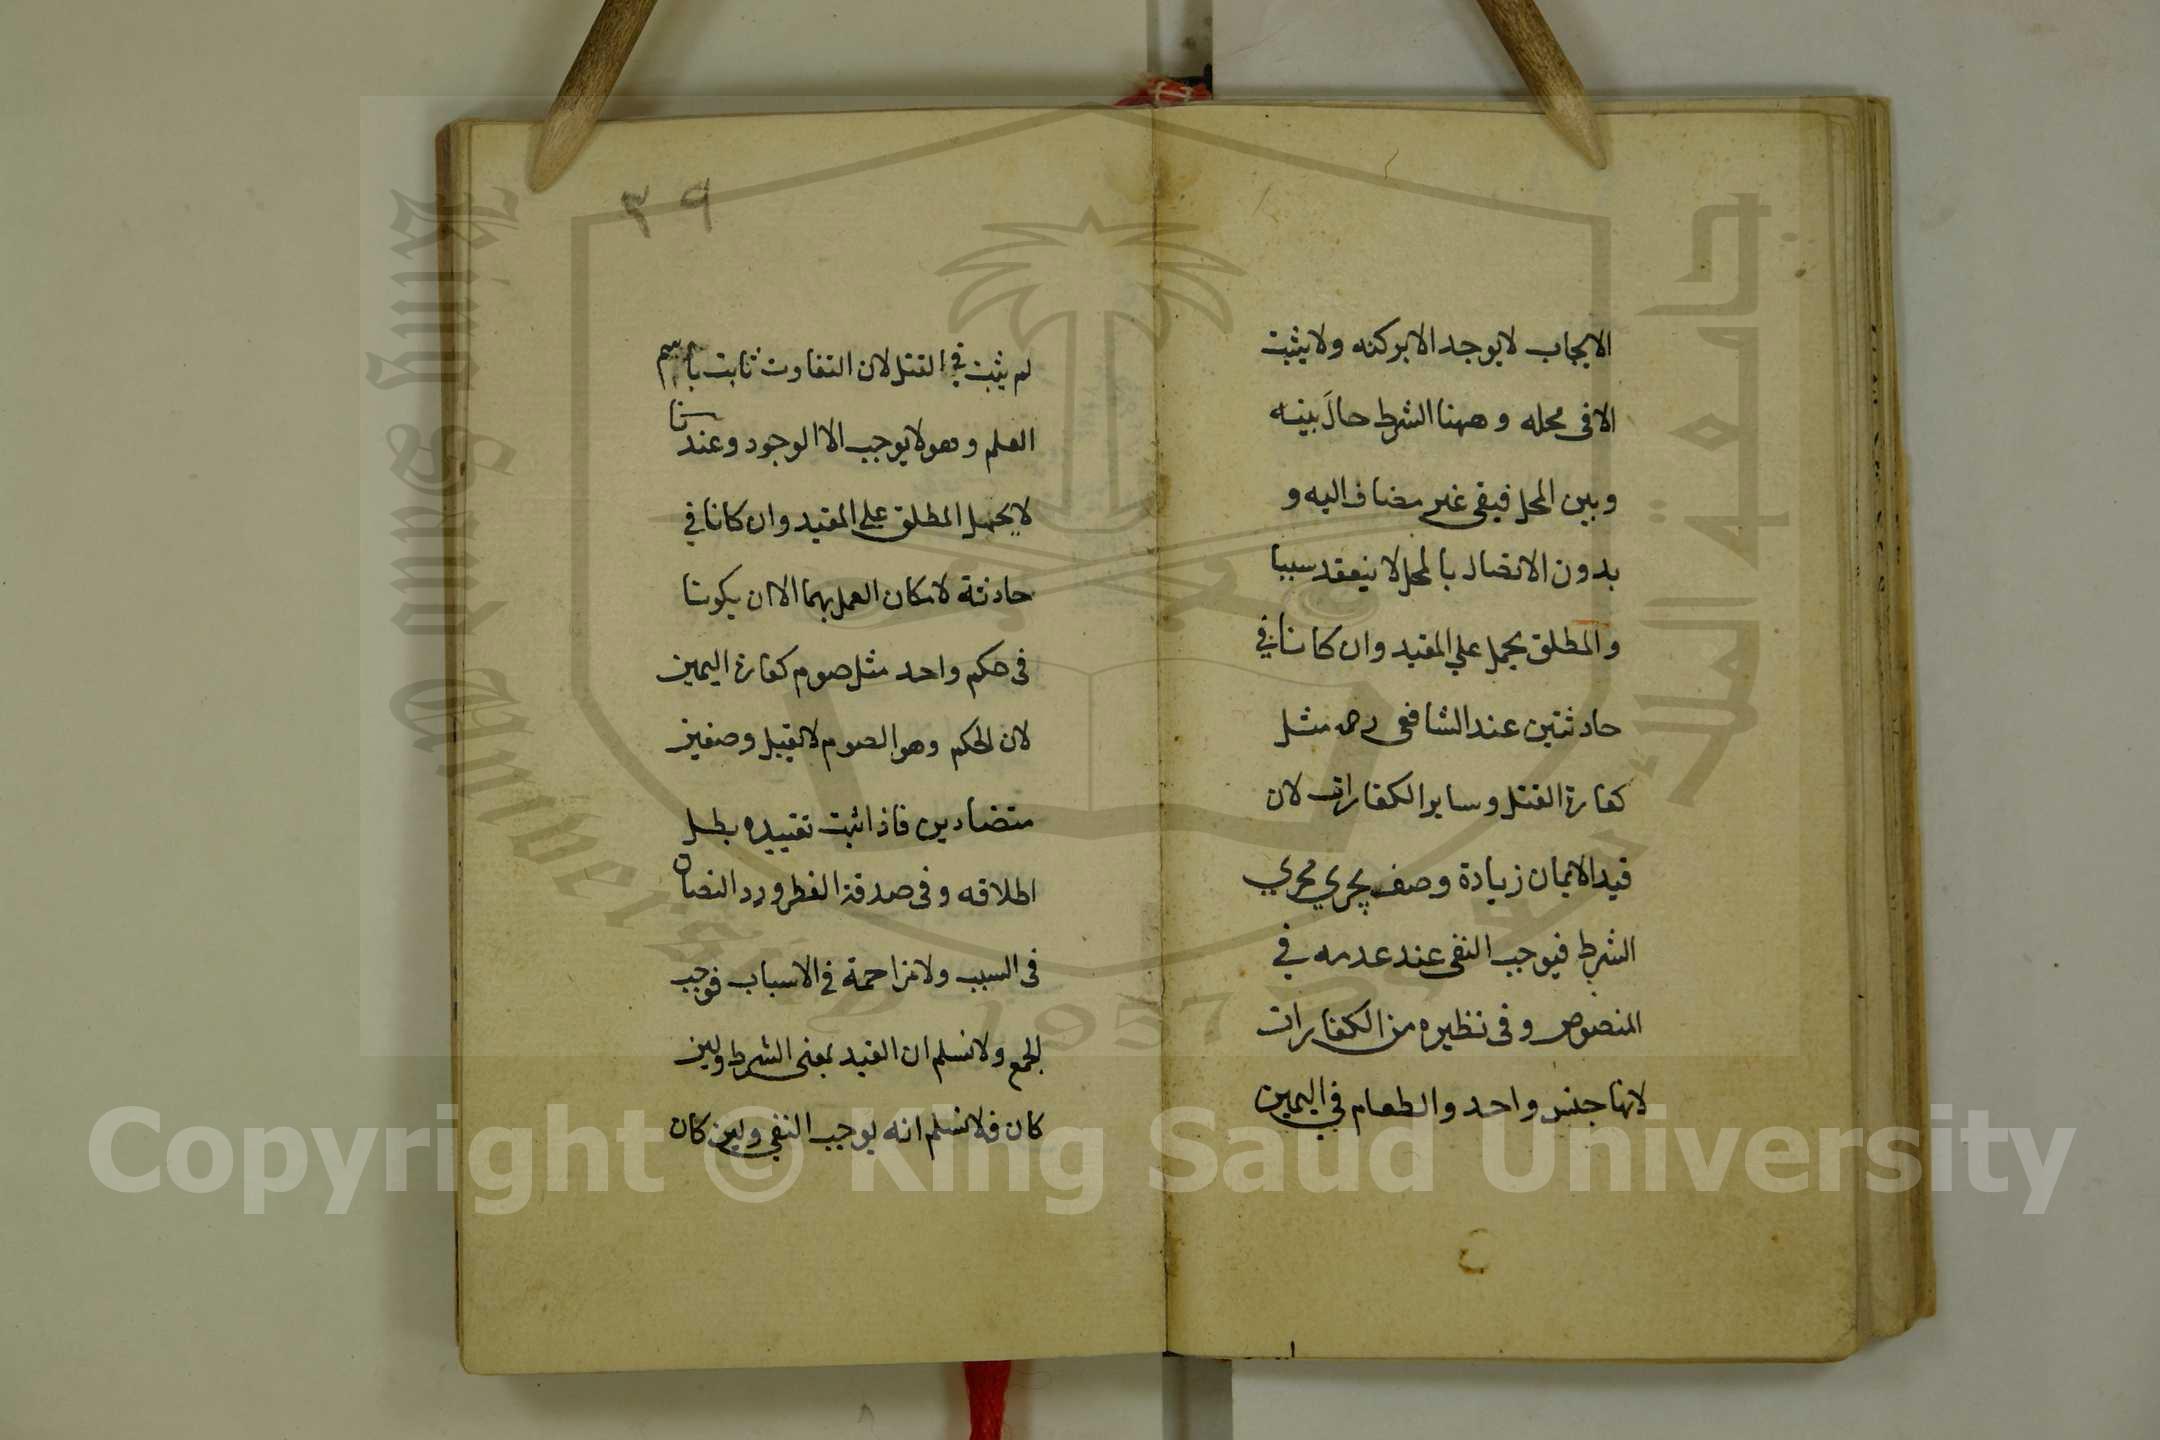 الايجاب لا يوجد الا بركنه ولا يثبت
الا في محله وههنا الشرط حالَ بينه
وبين المحل فبقى غير مضاف اليه و
بدون الاتصال بالمحل لا ينعقد سببا
والمطلق يحمل على المقيد وان كانا في
حادثتين عند الشافعى رحمه مثل
كفارة القتل وساير الكفارات لان
قيد الايمان زيادة وصف يجرى مجرى
الشرط فيوجب النفى عند عدمه في
المنصوص وفى نظيره من الكفارات
لانها جنس واحد والطعام في اليمين
٣٩
لم يثبت في القتل لان التفاوت ثابت باسم
العلم وهو لا يوجب الا الوجود وعندنا
لا يحمل المطلق على المقيد وان كانا في
حادثة لامكان العمل بهما الا ان يكونا
فى حكم واحد مثل صوم كفارة اليمين
لان الحكم وهو الصوم لا يقبل وصفين
متضادين فاذا ثبت تقييده بطل
اطلاقه وفى صدقة الفطر ورد النصان
فى السبب ولا مزاحمة في الاسباب فوجب
الجمع ولا نسلم ان القيد بمعنى الشرط ولين
كان فلا نسلم انه يوجب النفى ولين كان
King Saud University
جامعة الملك سعود
1957
Copyright © King Saud University